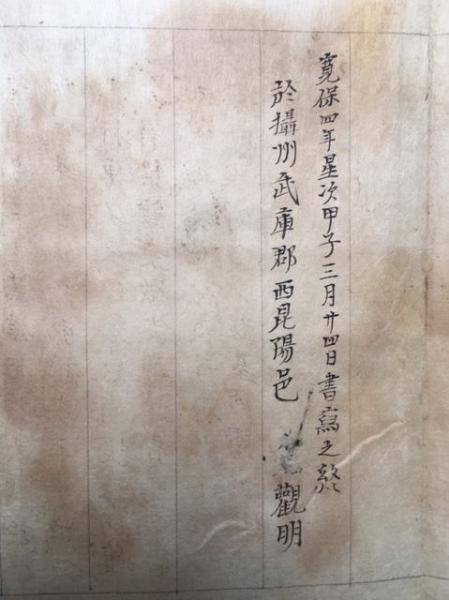 寛保四年星次甲子三月廿四日書寫之終
於攝州武庫郡西昆陽邑 觀明